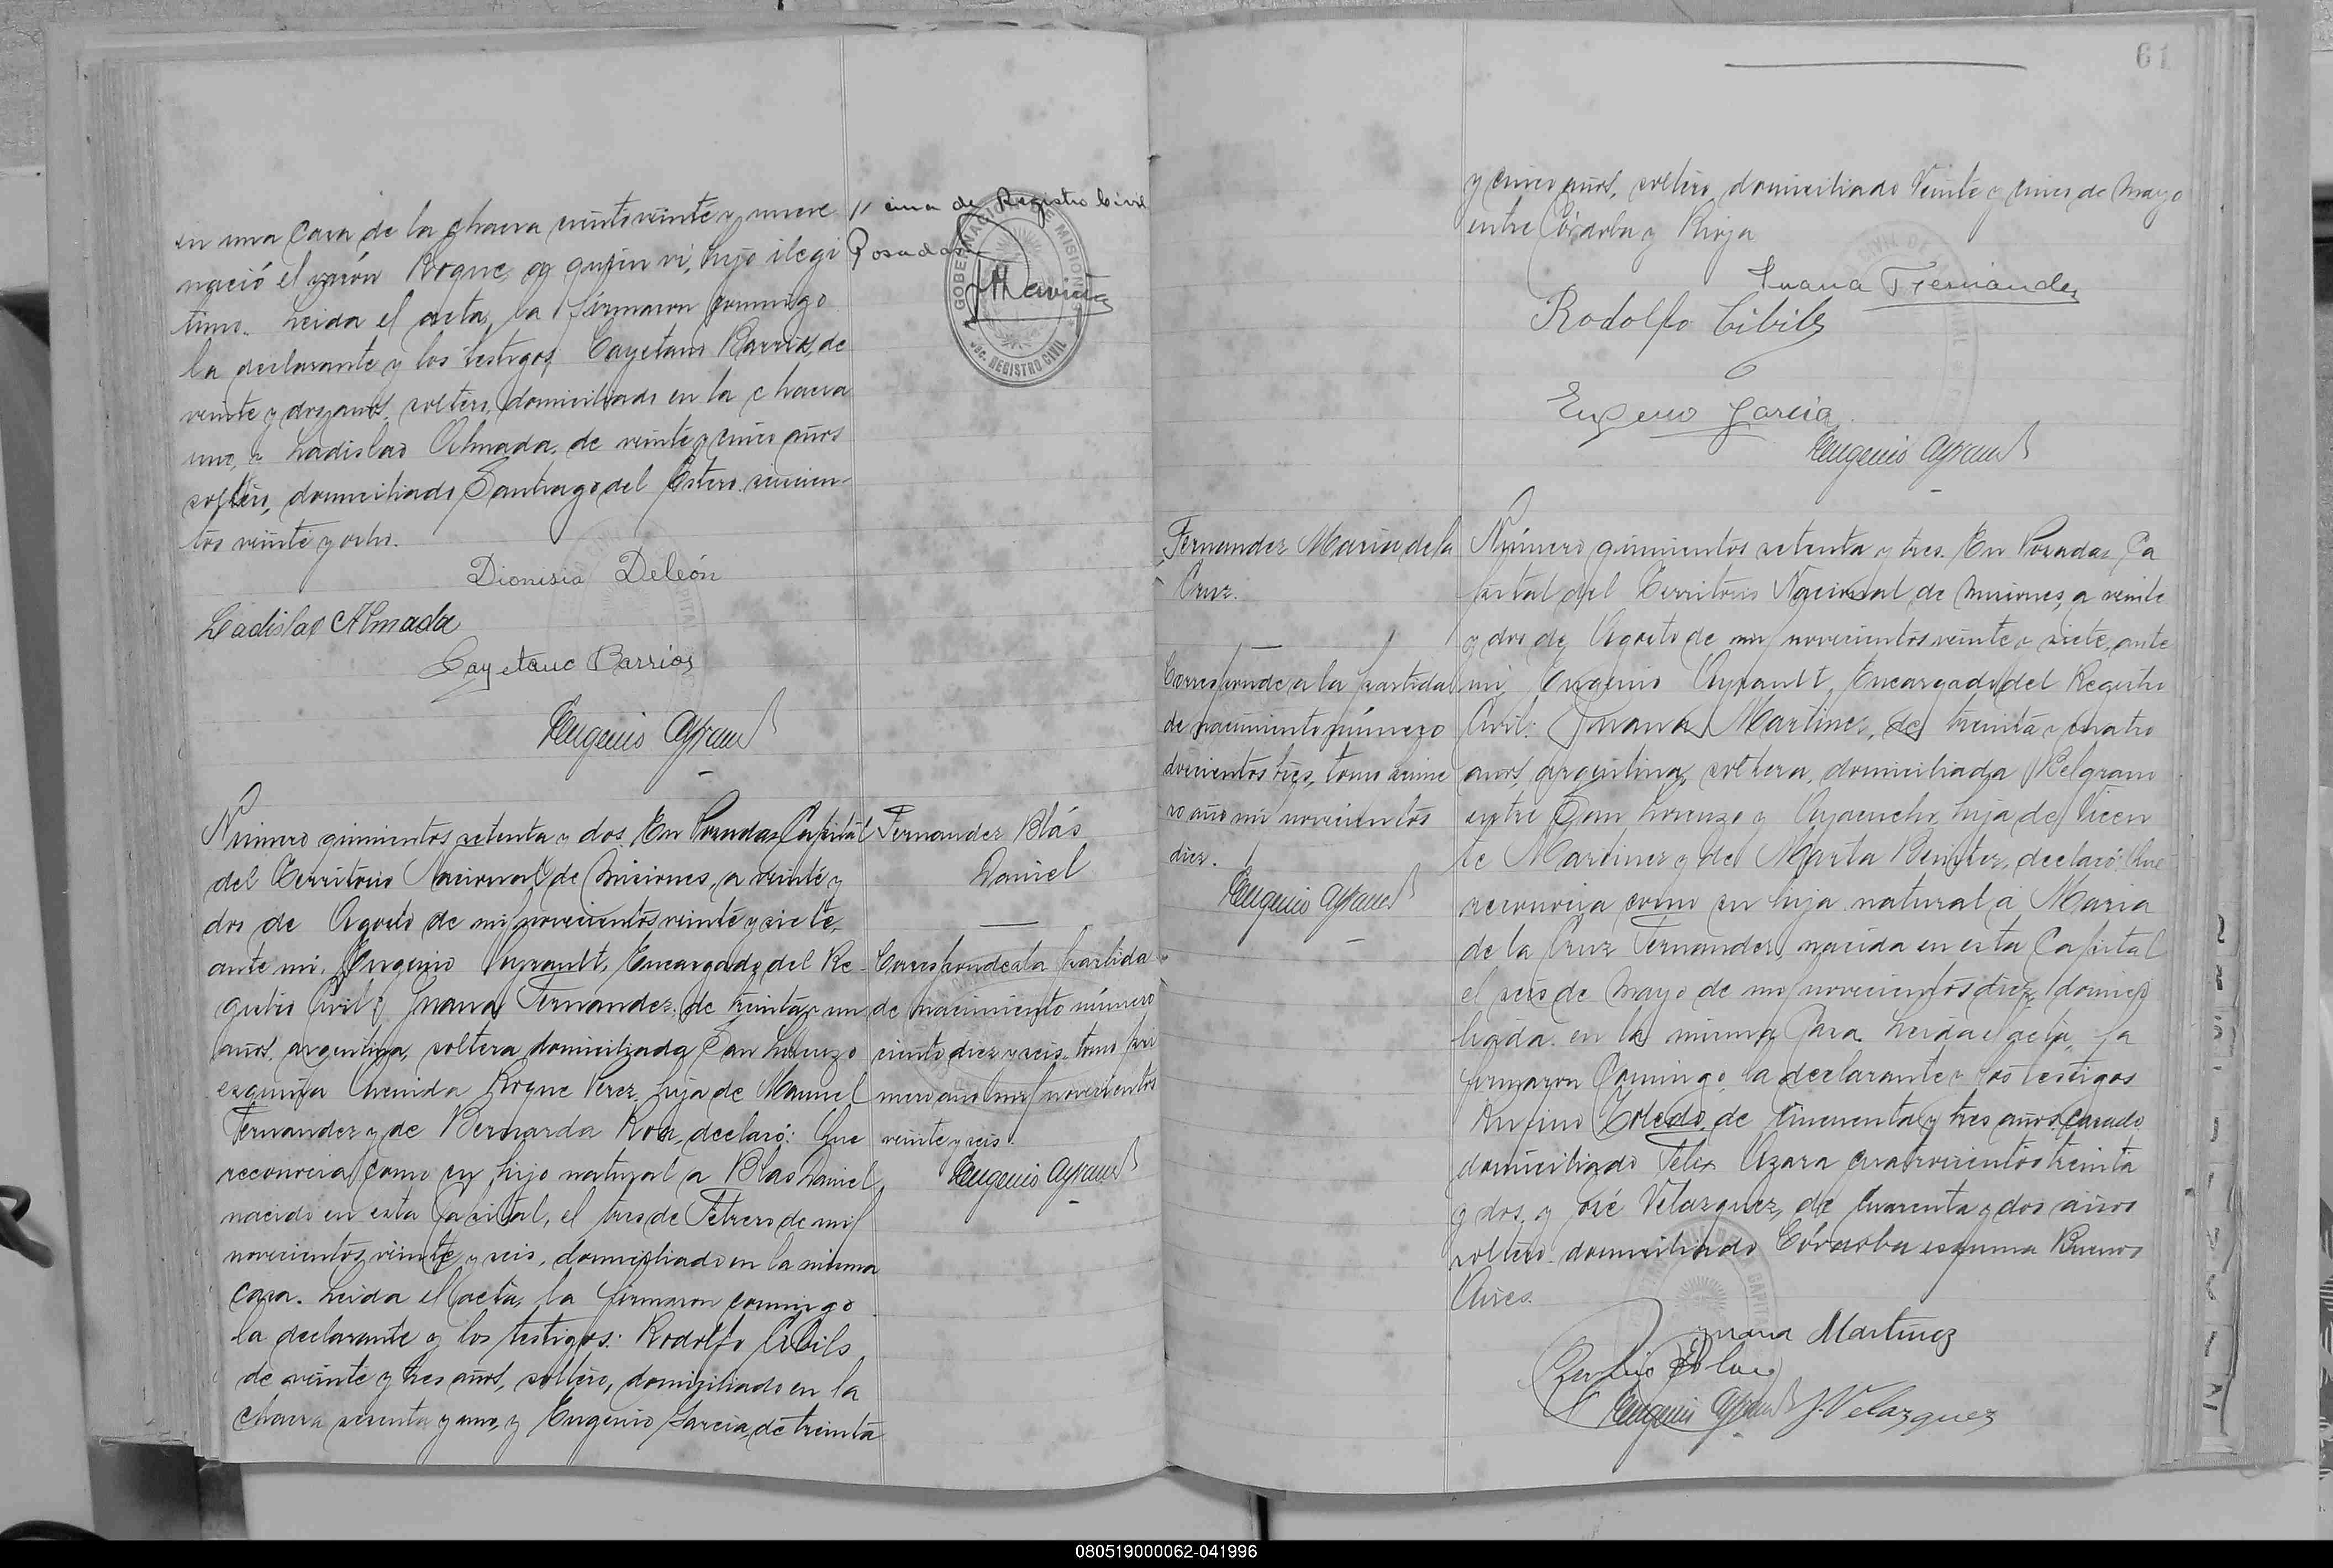 en una casa de la chacra ciento veinte y nueve
nació el varón Roque, a quien vi, hijo ilegi
timo. Leida el acta, la firmaron conmigo
la declarante y los testigos, Cayetano Barrios, de
veinte y dos años, soltero, domiciliado en la chacra
uno, y Ladislao Almada, de veinte y cinco años
soltero, domiciliado Santiago del Estero seiscien-
tos veinte y ocho.
Dionisia Deleón
Ladislao Almada
Cayetano Barrios
Eugenio Ayrault
Registro Civil
Posadas
GOBERNACIÓN DE MISIONES
REGISTRO CIVIL
Número quinientos setenta y dos. En Posadas, Capital
del Territorio Nacional de Misiones, a veinte y
dos de Agosto de mil novecientos veinte y siete,
ante mi, Eugenio Ayrault, Encargado del Re-
gistro Civil: Juana Fernandez, de treinta y un
años, argentina, soltera, domiciliada San Lorenzo
esquina Avenida Roque Perez, hija de Manuel
Fernandez y de Bernarda Roa, declaró: Que
reconocia como su hijo natural a Blas Daniel,
nacido en esta Capital, el tres de Febrero de mil
novecientos veinte y seis, domiciliado en la misma
casa. Leida el acta, la firmaron conmigo
la declarante y los testigos: Rodolfo Cibils
de veinte y tres años, soltero, domiciliado en la
chacra sesenta y uno, y Eugenio Garcia, de treinta
Fernandez Blás
Daniel
Corresponde a la partida
de nacimiento número
ciento diez y seis, tomo pri
mero año mil novecientos
veinte y seis.
Eugenio Ayrault
61
y cinco años, soltero, domiciliado Veinte y cinco de Mayo
entre Córdoba y Rioja
Juana Fernandez
Rodolfo Cibils
Eugenio Garcia
Eugenio Ayrault
Fernandez Maria de la
Cruz.
Corresponde a la partida
de nacimiento número
doscientos tres, tomo prime
ro año mil novecientos
diez.
Eugenio Ayrault
Número quinientos setenta y tres. En Posadas, Ca
pital del Territorio Nacional de Misiones, a veinte
y dos de Agosto de mil novecientos veinte y siete, ante
mi, Eugenio Ayrault, Encargado del Registro
Civil: Juana Martinez, de treinta y cuatro
años, argentina, soltera, domiciliada Belgrano
entre San Lorenzo y Ayacucho, hija de Vicen
te Martinez y de Marta Benitez, declaró: Que
reconocia como su hija natural á Maria
de la Cruz Fernandez, nacida en esta Capital
el seis de Mayo de mil novecientos diez, domici
liada en la misma casa. Leida el acta, la
firmaron conmigo la declarante y los testigos
Rufino Toledo, de cincuenta y tres años, casado,
domiciliado Felix Azara cuatrocientos treinta
y dos, y José Velazquez, de cuarenta y dos años
soltero domiciliado Córdoba esquina Buenos
Aires.
Juana Martinez
Eugenio Ayrault J. Velazquez